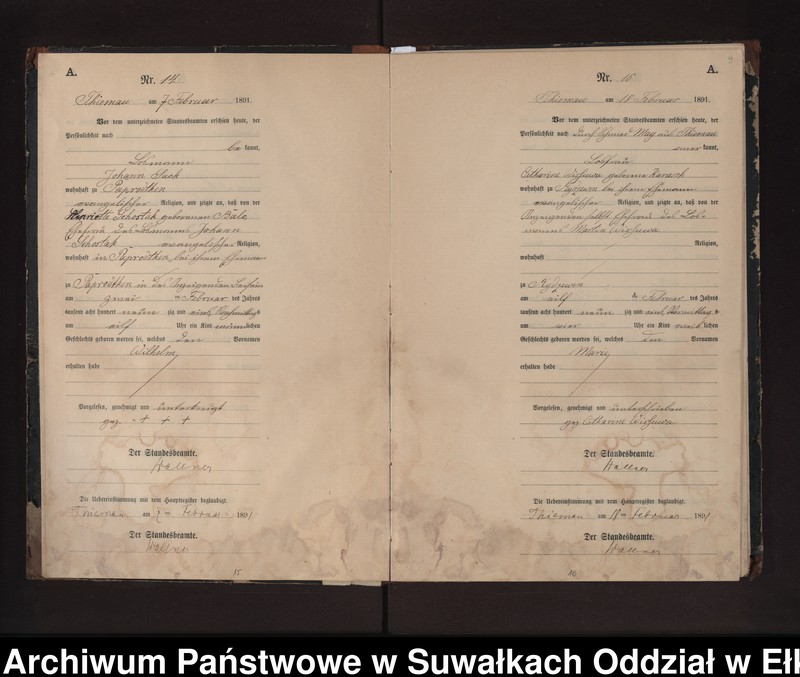 A.
Nr. 14
Thiemau am 7 Februar 1891.
Vor dem unterzeichneten Standesbeamten erschien heute, der
Persönlichkeit nach
be kannt,
Losmann
Johann Sack
wohnhaft zu Paproütken
evangelischer Religion, und zeigte an, daß von der
Henriette Schostak geborenen
Ehefrau des Losmanns Johann
Schostak evangelischer Religion,
wohnhaft in Paproütken bei ihrem Eheman
zu Paproütken in des
am zwei ten Februar des Jahres
tausend acht hundert neun zig und eins
um eilf Uhr ein Kind männ lichen
Geschlechts geboren worden sei, welches den Vornamen
Wilhelm
erhalten habe
Vorgelesen, genehmigt und
gez. + + +
Der Standesbeamte.
Wallner
Die Uebereinstimmung mit dem Hauptregister beglaubigt.
Thiemau am 7 ten Februar 1891
Der Standesbeamte.
Wallner
15
9
A.
Nr. 15
Thiemau am 18 Februar 1891.
Vor dem unterzeichneten Standesbeamten erschien heute, der
Persönlichkeit nach durch May aus Thiemau
kannt,
Losfrau
Catharine geborene
wohnhaft zu bei ihrem Ehemann
evangelischer Religion, und zeigte an, daß von der
selbst Ehefrau des Los-
manns Martin
Religion,
wohnhaft
zu
am eilf ten Februar des Jahres
tausend acht hundert neun zig und eins Vormittag s
um vier Uhr ein Kind weib lichen
Geschlechts geboren worden sei, welches den Vornamen
Marie
erhalten habe
Vorgelesen, genehmigt und unterschrieben
gez Catharine
Der Standesbeamte.
Wallner
Die Uebereinstimmung mit dem Hauptregister beglaubigt.
Thiemau am 18 ten Februar 1891
Der Standesbeamte.
Wallner
16
Archiwum Państwowe w Suwałkach Oddział w Ełk